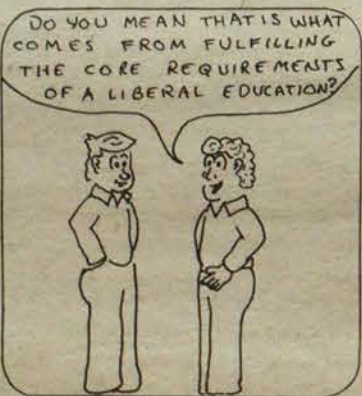 DO YOU MEAN THAT IS WHAT
COMES FROM FULFILLING
THE CORE REQUIREMENTS
OF A LIBERAL EDUCATION?